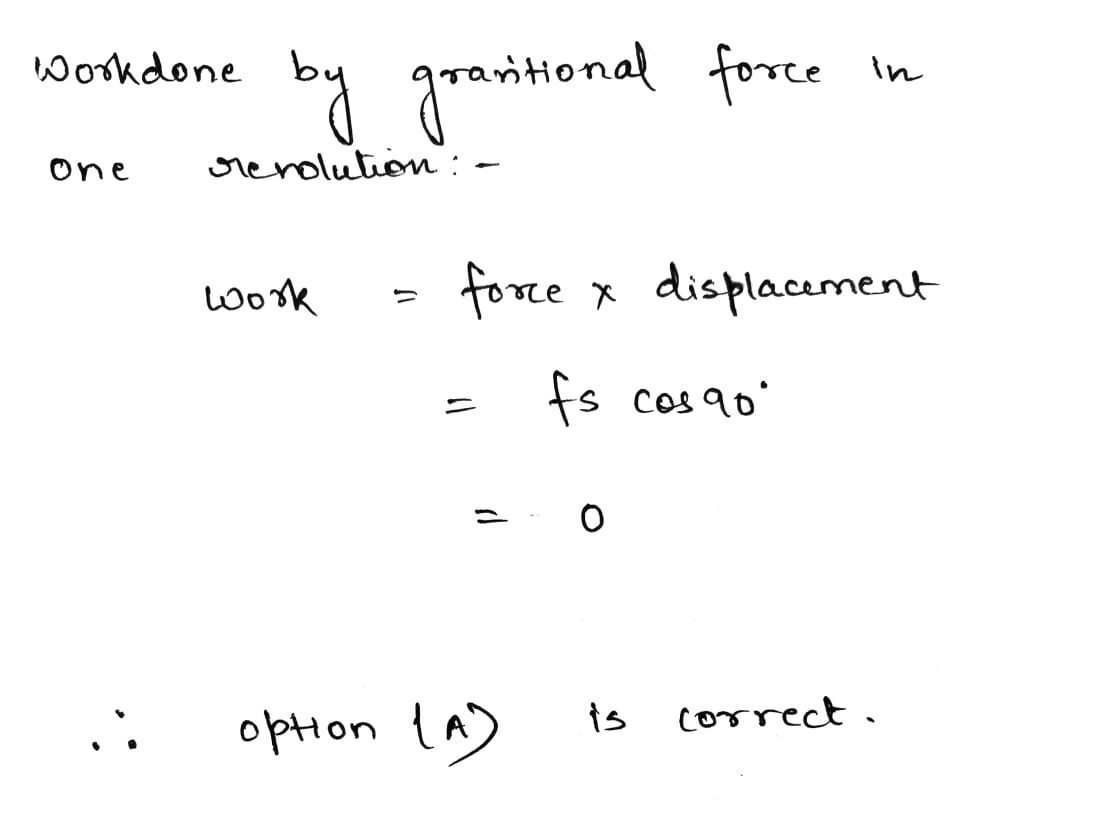 Workdone by gravitional force in
one revolution : -
Work = force x displacement
= fs cos 90°
= 0
∴ option (A) is correct.